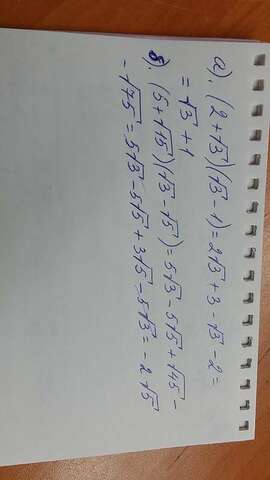 а). (2+√3)(√3-1)=2√3+3-√3-2=
=√3+1
б). (5+√15)(√3-√5)=5√3-5√5+√45-
-√75=5√3-5√5+3√5-5√3=-2√5